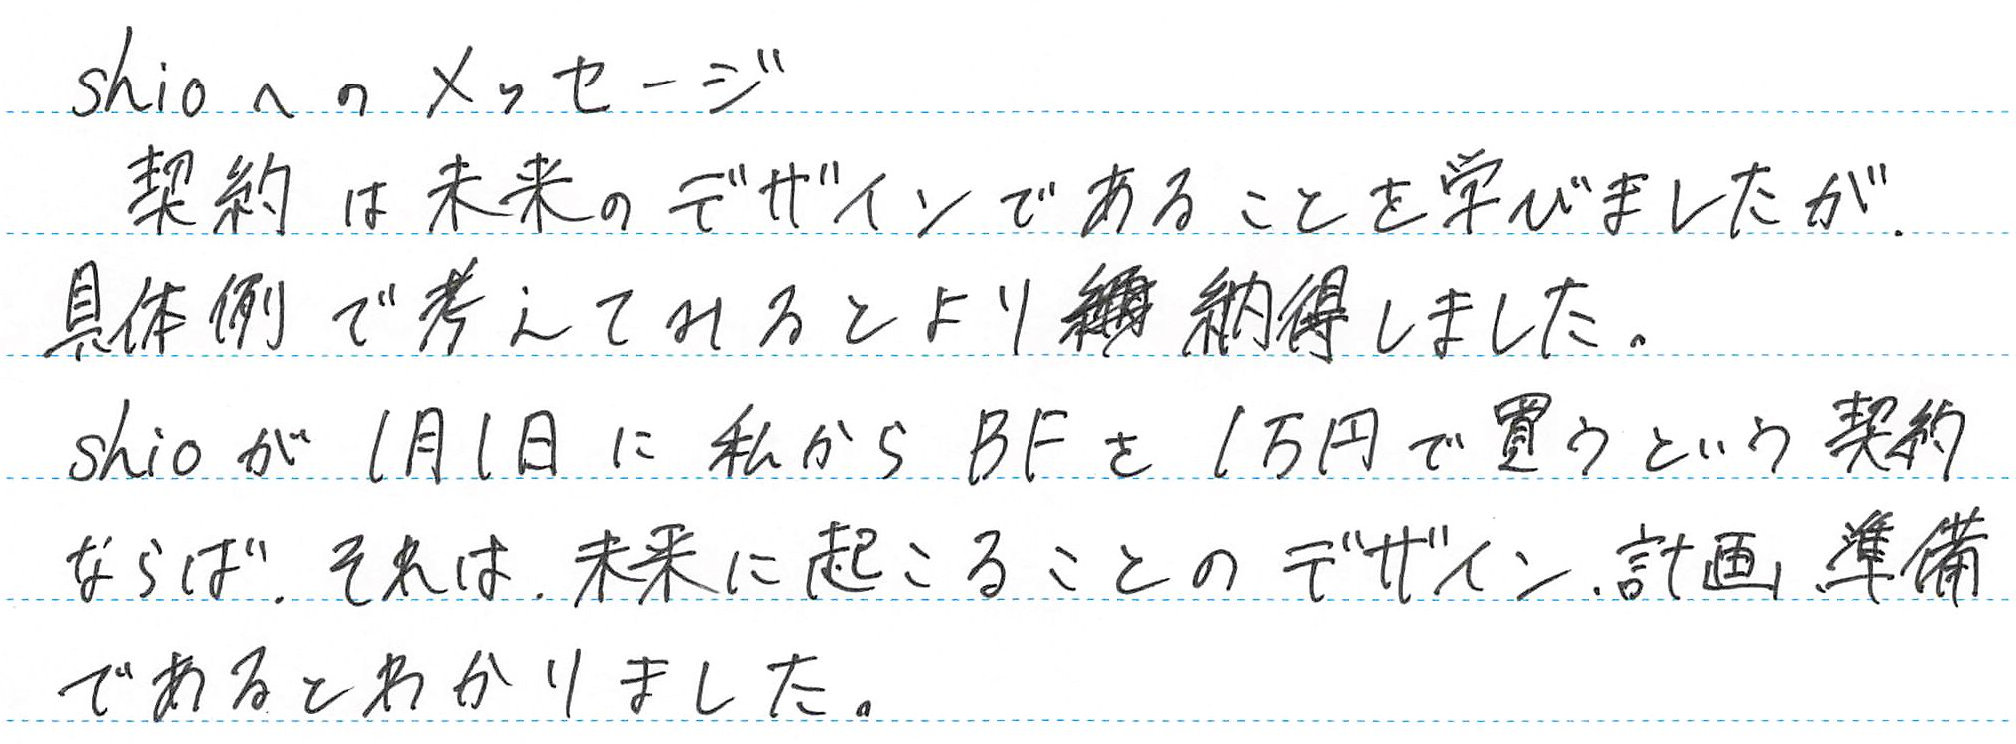 shioへのメッセージ
契約は未来のデザインであることを学びましたが、
具体例で考えてみるとより納得しました。
shioが1月1日に私からBFを1万円で買うという契約
ならば、それは、未来に起こることのデザイン、計画、準備
であるとわかりました。